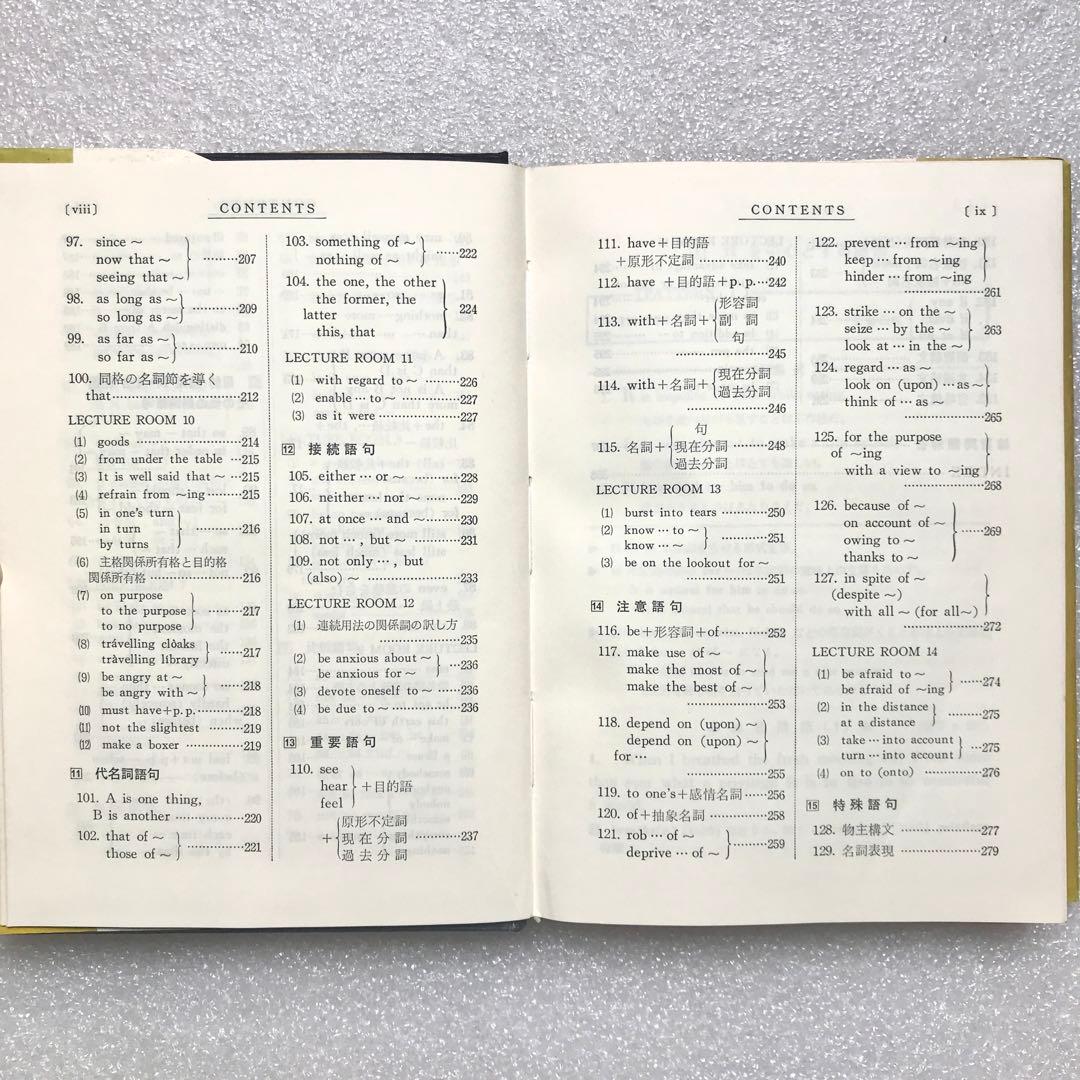 〔viii〕 CONTENTS
97. since ～
now that ～
seeing that ～ ………207
98. as long as ～
so long as ～ …………209
99. as far as ～
so far as ～ …………210
100. 同格の名詞節を導く
that………………………212
LECTURE ROOM 10
(1) goods ………………214
(2) from under the table …215
(3) It is well said that ～ …215
(4) refrain from ～ing ……215
(5) in one's turn
in turn
by turns …………216
(6) 主格関係所有格と目的格
関係所有格 ………………216
(7) on purpose
to the purpose
to no purpose ………217
(8) trávelling clòaks
tràvelling líbrary ……217
(9) be angry at ～
be angry with ～ ……218
(10) must have+p.p. ………218
(11) not the slightest ………219
(12) make a boxer …………219
11 代名詞語句
101. A is one thing,
B is another ……………220
102. that of ～
those of ～ ……………221
103. something of ～
nothing of ～ ……222
104. the one, the other
the former, the
latter
this, that 224
LECTURE ROOM 11
(1) with regard to ～ ………226
(2) enable … to ～ …………227
(3) as it were ………………227
12 接続語句
105. either … or ～ …………228
106. neither … nor ～ ………229
107. at once … and ～ ………230
108. not … , but ～ …………231
109. not only … , but
(also) ～ …………………233
LECTURE ROOM 12
(1) 連続用法の関係詞の訳し方
………………235
(2) be anxious about ～
be anxious for ～ …236
(3) devote oneself to ～ ……236
(4) be due to ～ ……………236
13 重要語句
110. see
hear
feel +目的語
+ 原形不定詞
現在分詞
過去分詞 ………237
CONTENTS 〔 ix 〕
111. have+目的語
+原形不定詞 ………………240
112. have +目的語+p.p.…242
113. with+名詞+ 形容詞
副 詞
句
………………245
114. with+名詞+ 現在分詞
過去分詞
………………246
115. 名詞+ 句
現在分詞
過去分詞 ……248
LECTURE ROOM 13
(1) burst into tears …………250
(2) know … to ～
know … ～ …………251
(3) be on the lookout for ～
………………251
14 注意語句
116. be+形容詞+of…………252
117. make use of ～
make the most of ～
make the best of ～
………………253
118. depend on (upon) ～
depend on (upon) ～
for …
………………255
119. to one's+感情名詞……256
120. of+抽象名詞 ……………258
121. rob … of ～
deprive … of ～ ………259
122. prevent … from ～ing
keep … from ～ing
hinder … from ～ing
………………261
123. strike … on the ～
seize … by the ～
look at … in the ～ 263
124. regard … as ～
look on (upon) …as～
think of … as ～
………………265
125. for the purpose
of ～ing
with a view to ～ing
………………268
126. because of ～
on account of ～
owing to ～
thanks to ～ ………269
127. in spite of ～
(despite ～)
with all ～ (for all～)
………………272
LECTURE ROOM 14
(1) be afraid to ～
be afraid of ～ing ……274
(2) in the distance
at a distance …………275
(3) take … into account
turn … into account …275
(4) on to (onto) ……………276
15 特殊語句
128. 物主構文 …………………277
129. 名詞表現 …………………279